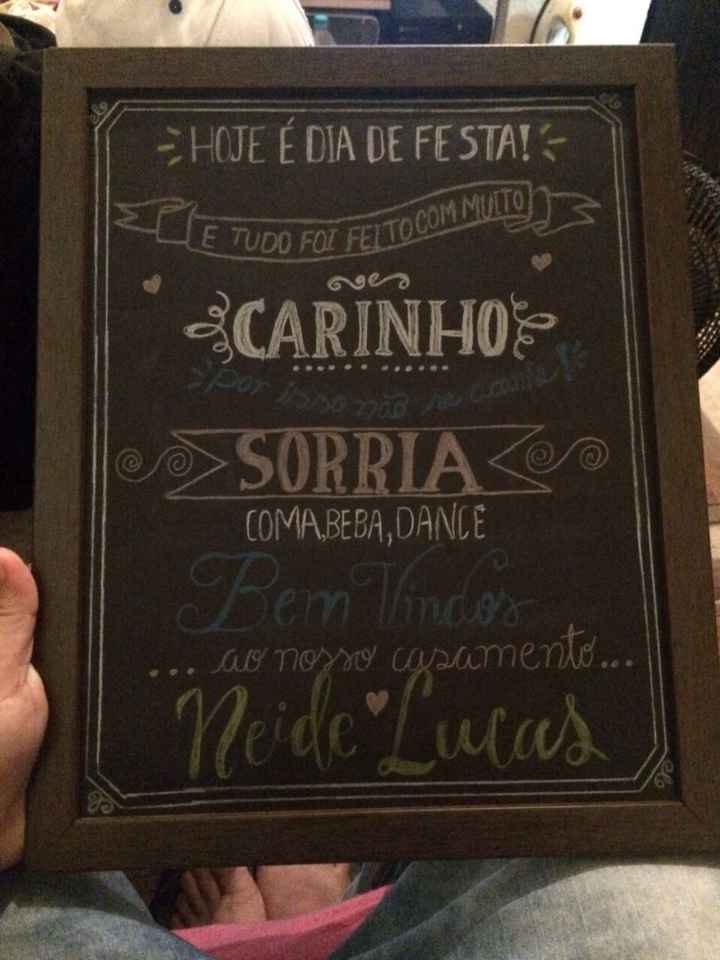 HOJE É DIA DE FESTA!
E TUDO FOI FEITO COM MUITO
CARINHO
por isso não se acanhe!
SORRIA
COMA, BEBA, DANCE
Bem Vindos
... ao nosso casamento...
Neide Lucas